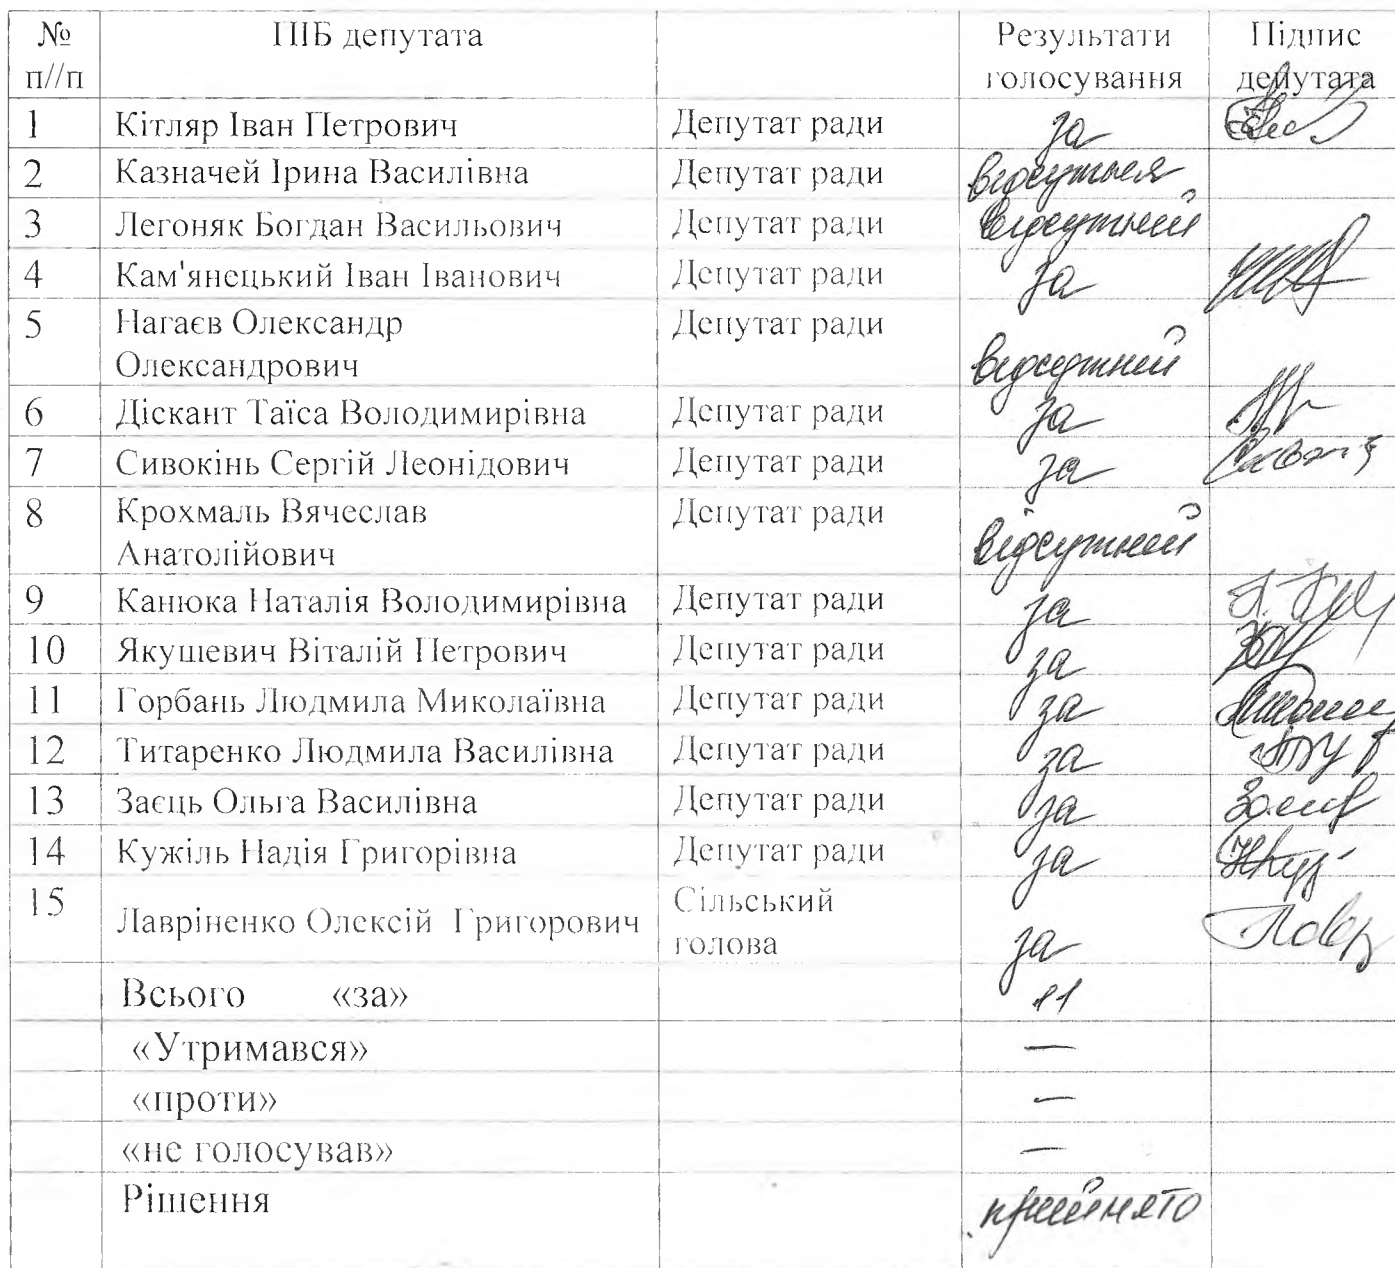 № п//п ПІБ депутата Результати голосування Підпис депутата
1 Кітляр Іван Петрович Депутат ради за
2 Казначей Ірина Василівна Депутат ради відсутня
3 Легоняк Богдан Васильович Депутат ради відсутній
4 Кам'янецький Іван Іванович Депутат ради за
5 Нагаєв Олександр Олександрович Депутат ради відсутній
6 Діскант Таїса Володимирівна Депутат ради за
7 Сивокінь Сергій Леонідович Депутат ради за
8 Крохмаль Вячеслав Анатолійович Депутат ради відсутній
9 Канюка Наталія Володимирівна Депутат ради за
10 Якушевич Віталій Петрович Депутат ради за
11 Горбань Людмила Миколаївна Депутат ради за
12 Титаренко Людмила Василівна Депутат ради за
13 Заєць Ольга Василівна Депутат ради за
14 Кужіль Надія Григорівна Депутат ради за
15 Лавріненко Олексій Григорович Сільський голова за
Всього «за» 11
«Утримався» —
«проти» —
«не голосував» —
Рішення прийнято